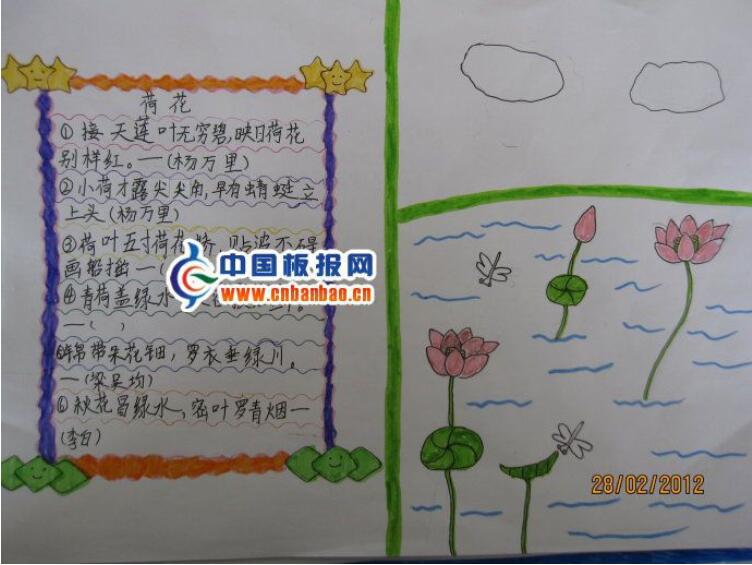 荷花
①接天莲叶无穷碧,映日荷花
别样红。—(杨万里)
②小荷才露尖尖角,早有蜻蜓立
上头(杨万里)
③荷叶五寸荷花娇,贴波不碍
画船摇—(
④青荷盖绿水
—( )
⑤锦带朵花钿,罗衣垂绿川。
—(梁吴均)
⑥秋花冒绿水,密叶罗青烟—
(李白)
中国板报网
www.cnbanbao.cn
28/02/2012